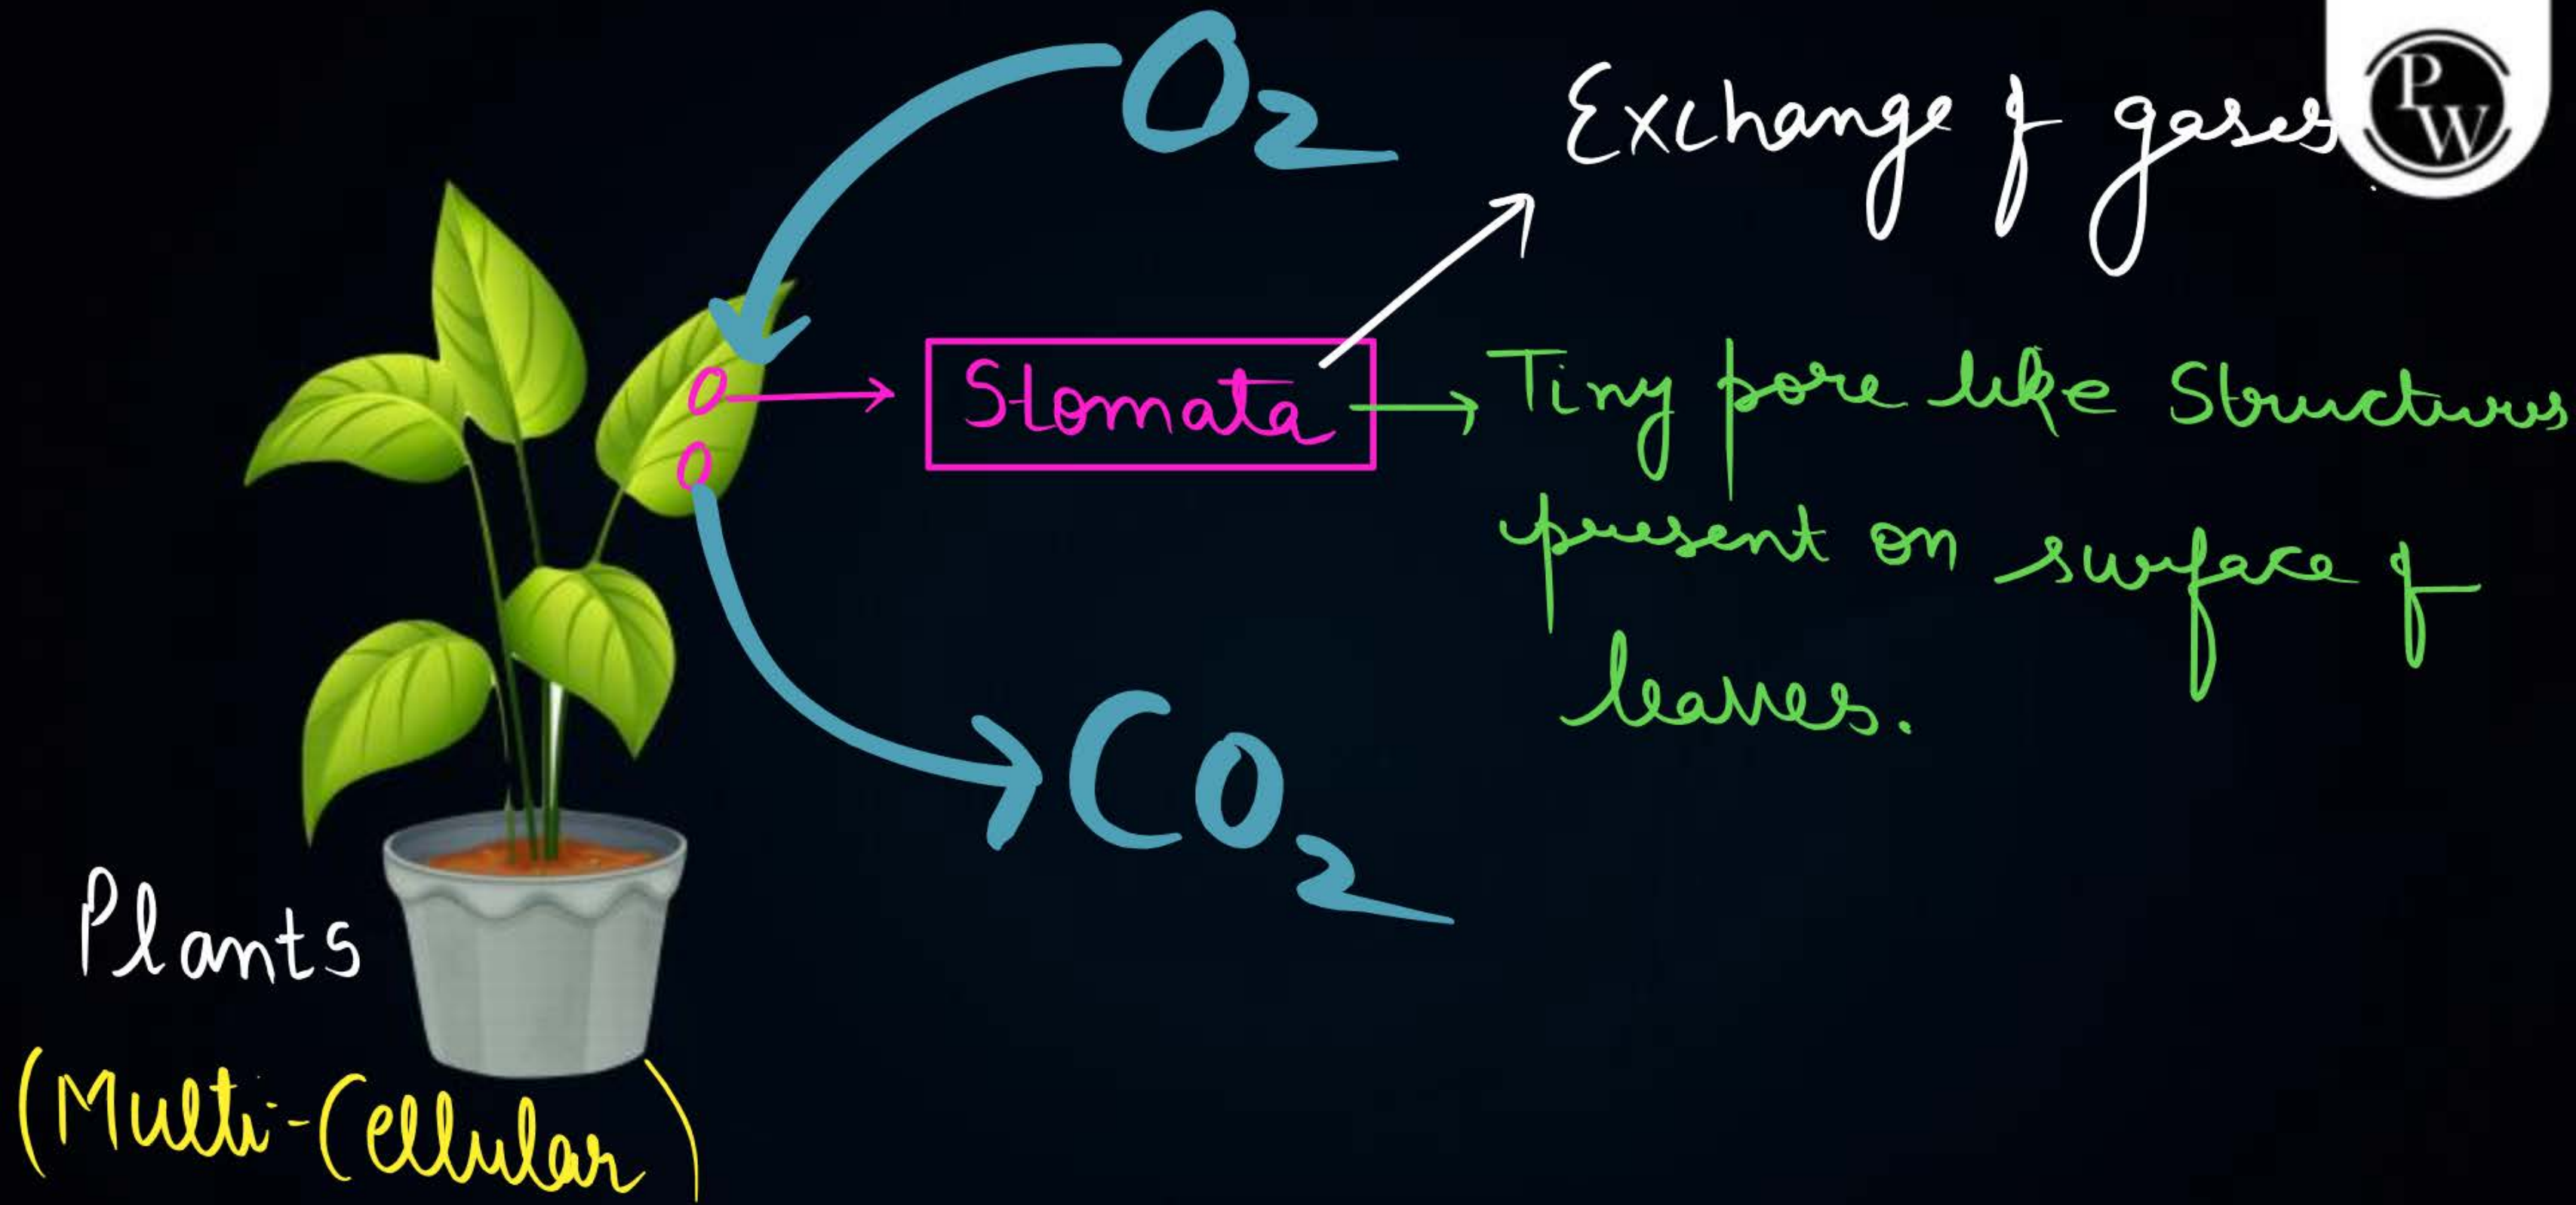 O2
Exchange of gases.
PW
Stomata
Tiny pore like Structures
present on surface of
leaves.
CO2
Plants
(Multi-Cellular)